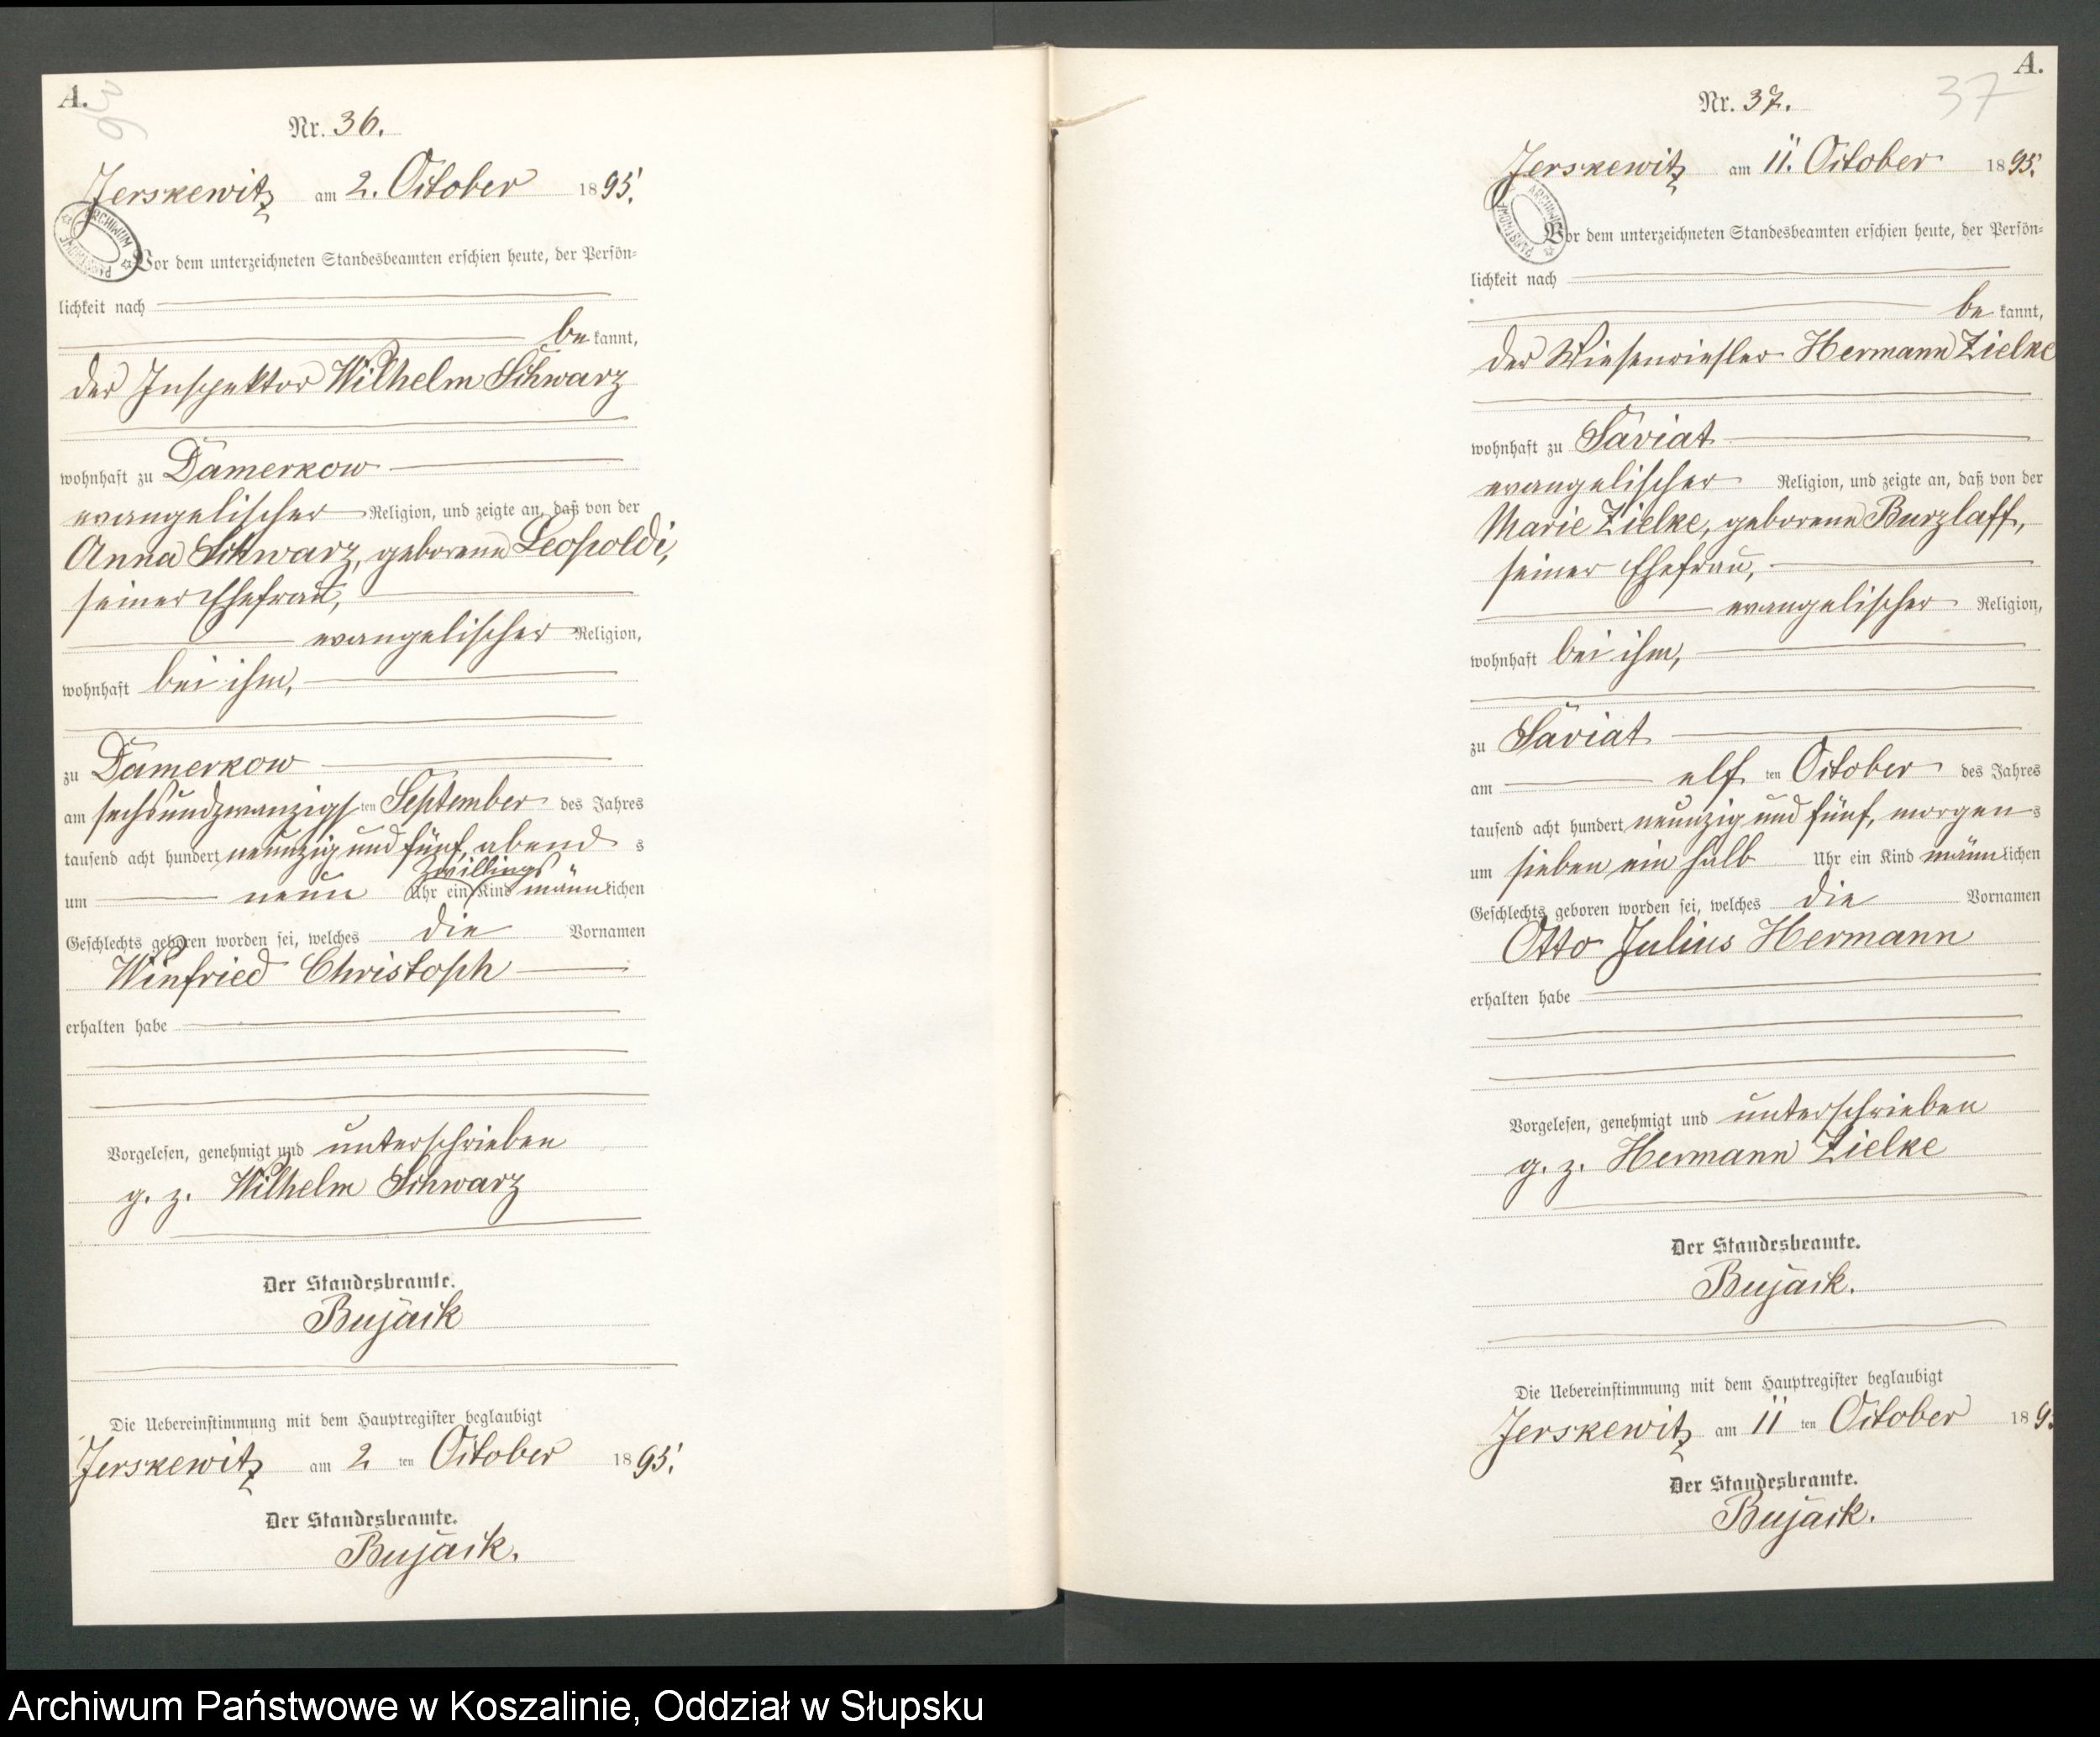 A.
36
Nr. 36.
Jerskewitz am 2. October 1895.
ARCHIWUM PAŃSTWOWE
Vor dem unterzeichneten Standesbeamten erschien heute, der Persön-
lichkeit nach
bekannt,
der Inspektor Wilhelm Schwarz
wohnhaft zu Damerkow
evangelischer Religion, und zeigte an, daß von der
Anna Schwarz, geborene Leopoldi,
seiner Ehefrau,
evangelischer Religion,
wohnhaft bei ihm,
zu Damerkow
am sechsundzwanzigsten September des Jahres
tausend acht hundert neunzig und fünf, abends
um neun Uhr ein Zwillings Kind männlichen
Geschlechts geboren worden sei, welches die Vornamen
Winfried Christoph
erhalten habe
Vorgelesen, genehmigt und unterschrieben
g. z. Wilhelm Schwarz
Der Standesbeamte.
Bujack
Die Uebereinstimmung mit dem Hauptregister beglaubigt
Jerskewitz am 2 ten October 1895.
Der Standesbeamte.
Bujack.
A.
37
Nr. 37.
Jerskewitz am 11. October 1895.
ARCHIWUM PAŃSTWOWE
Vor dem unterzeichneten Standesbeamten erschien heute, der Persön-
lichkeit nach
bekannt,
der Wiesenriesler Hermann Zielke
wohnhaft zu Saviat
evangelischer Religion, und zeigte an, daß von der
Marie Zielke, geborene Burzlaff,
seiner Ehefrau,
evangelischer Religion,
wohnhaft bei ihm,
zu Saviat
am elf ten October des Jahres
tausend acht hundert neunzig und fünf, morgens
um sieben ein halb Uhr ein Kind männlichen
Geschlechts geboren worden sei, welches die Vornamen
Otto Julius Hermann
erhalten habe
Vorgelesen, genehmigt und unterschrieben
g. z. Hermann Zielke
Der Standesbeamte.
Bujack.
Die Uebereinstimmung mit dem Hauptregister beglaubigt
Jerskewitz am 11 ten October 189
Der Standesbeamte.
Bujack.
Archiwum Państwowe w Koszalinie, Oddział w Słupsku